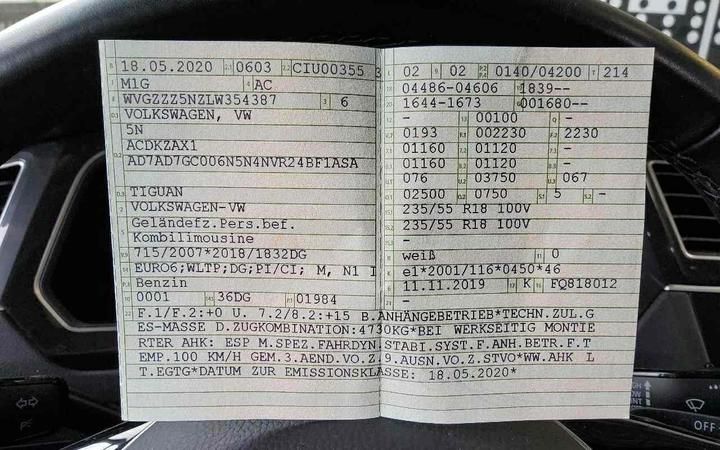 B 18.05.2020 2.1 0603 2.2 CIU00355 3
J M1G 4 AC
E WVGZZZ5NZLW354387 3 6
D.1 VOLKSWAGEN, VW
5N
D.2 ACDKZAX1
AD7AD7GC006N5N4NVR24BF1ASA
D.3 TIGUAN
2 VOLKSWAGEN-VW
5 Geländefz.Pers.bef.
Kombilimousine
V.9 715/2007*2018/1832DG
14 EURO6;WLTP;DG;PI/CI; M, N1 I
P.3 Benzin
10 0001 14.1 36DG P.1 01984
L 02 9 02 P.2 P.4 0140/04200 T 214
18 04486-04606 19 1839--
20 1644-1673 G 001680--
12 - 13 00100 Q -
V.7 0193 F.1 002230 F.2 2230
7.1 01160 7.2 01120 7.3 -
8.1 01160 8.2 01120 8.3 -
U.1 076 U.2 03750 U.3 067
O.1 02500 O.2 0750 S.1 5 S.2 -
15.1 235/55 R18 100V
15.2 235/55 R18 100V
15.3 -
R weiß 11 0
K e1*2001/116*0450*46
6 11.11.2019 17 K 16 FQ818012
21 -
22 F.1/F.2:+0 U. 7.2/8.2:+15 B.ANHÄNGEBETRIEB*TECHN.ZUL.G
ES-MASSE D.ZUGKOMBINATION:4730KG*BEI WERKSEITIG MONTIE
RTER AHK: ESP M.SPEZ.FAHRDYN.STABI.SYST.F.ANH.BETR.F.T
EMP.100 KM/H GEM.3.AEND.VO.Z.9.AUSN.VO.Z.STVO*WW.AHK L
T.EGTG*DATUM ZUR EMISSIONSKLASSE: 18.05.2020*
OFF